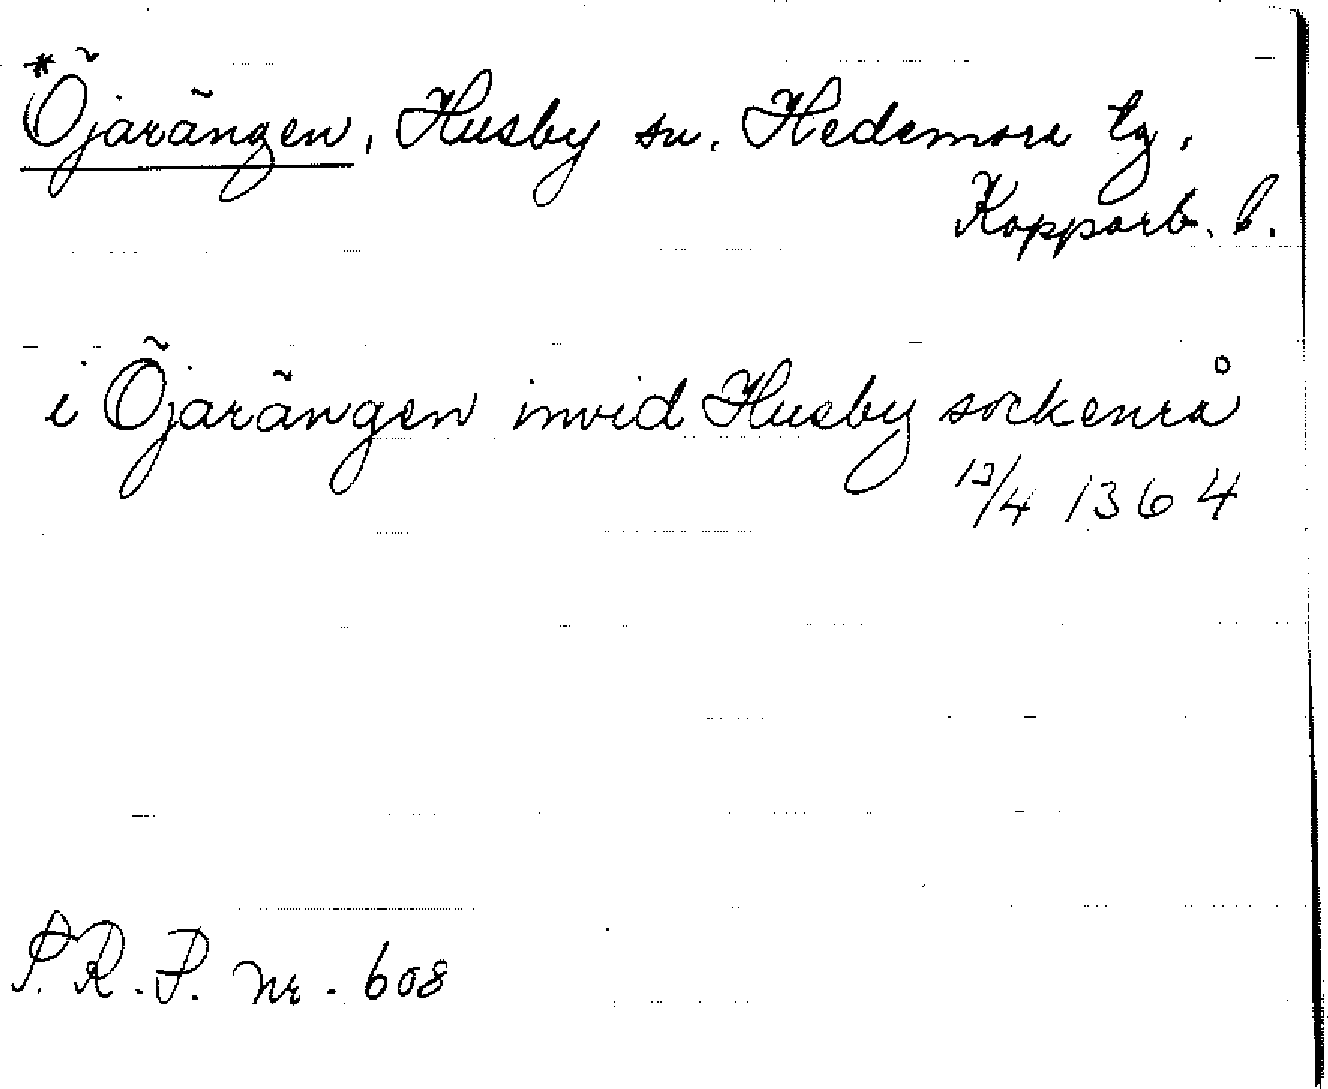 *Öjarängen, Husby sn. Hedemora tg,
Kopparb. l.
i Öjarängen invid Husby sockenrå
13/4 1364
S.R.P. nr. 608